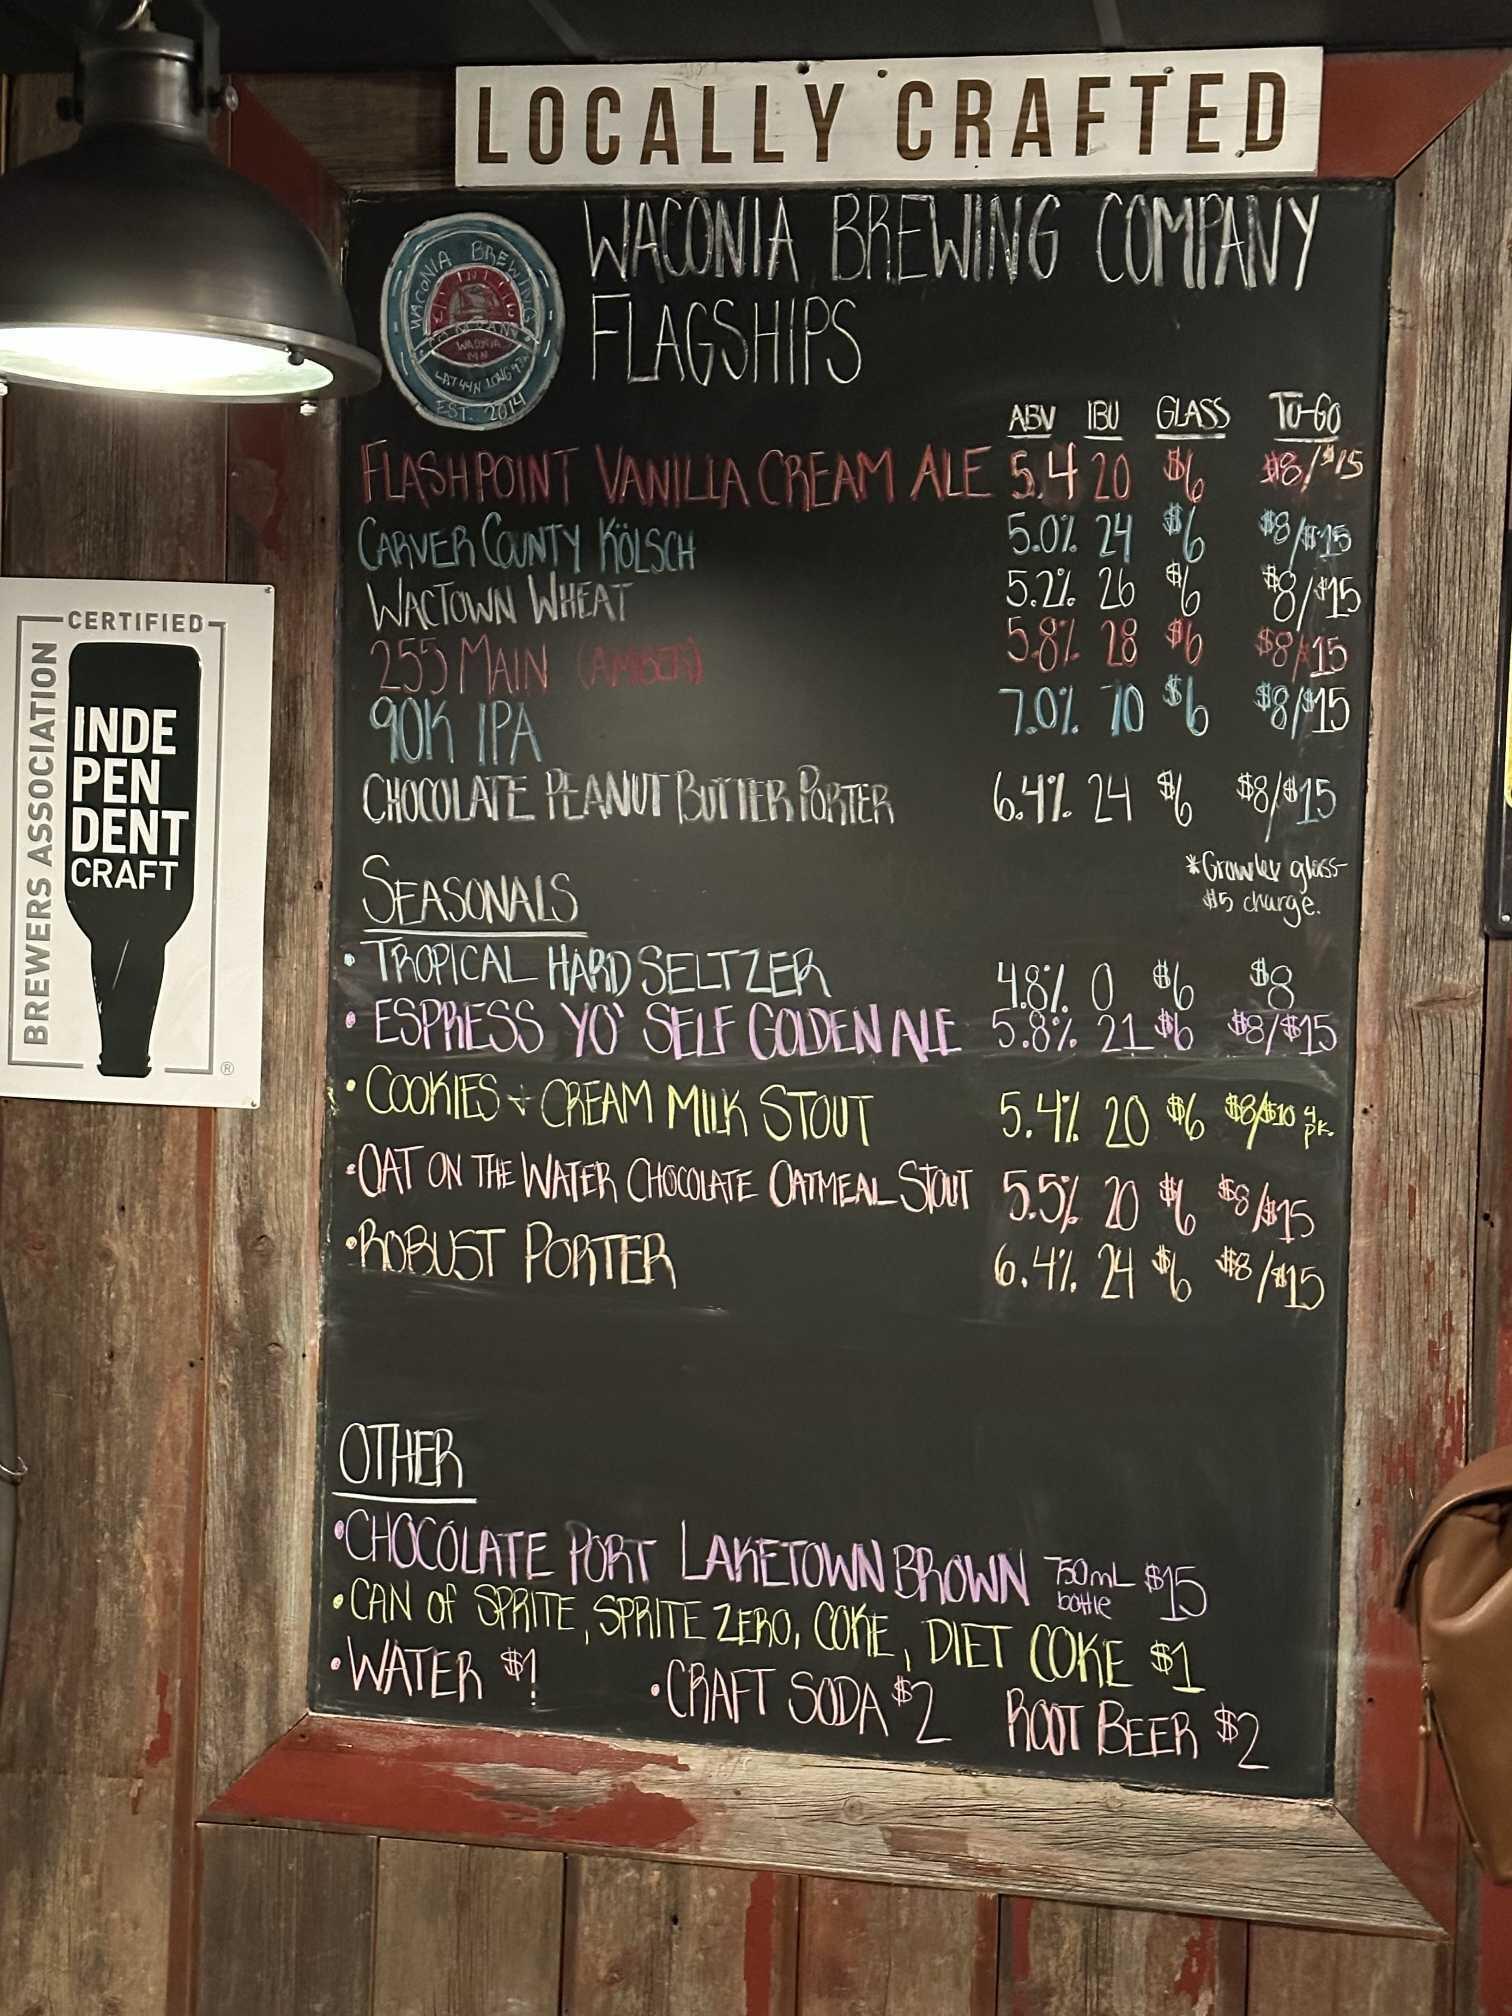 LOCALLY CRAFTED
WACONIA BREWING COMPANY
FLAGSHIPS
WACONIA BREWING
COMPANY
WACONIA
MN
EST. 2014
ABV IBU GLASS TO-GO
FLASHPOINT VANILLA CREAM ALE 5.4 20 $6 $8/$15
CARVER COUNTY KÖLSCH 5.0% 24 $6 $8/$15
WACTOWN WHEAT 5.2% 26 $6 $8/$15
255 MAIN (AMBER) 5.8% 28 $6 $8/$15
90K IPA 7.0% 70 $6 $8/$15
CHOCOLATE PEANUT BUTTER PORTER 6.4% 24 $6 $8/$15
*Growler glass-
$5 charge.
SEASONALS
• TROPICAL HARD SELTZER 4.8% 0 $6 $8
• ESPRESS YO' SELF GOLDEN ALE 5.8% 21 $6 $8/$15
• COOKIES + CREAM MILK STOUT 5.4% 20 $6 $8/$10 4 pk.
• OAT ON THE WATER CHOCOLATE OATMEAL STOUT 5.5% 20 $6 $8/$15
• ROBUST PORTER 6.4% 24 $6 $8/$15
OTHER
• CHOCOLATE PORT LAKETOWN BROWN 750mL bottle $15
• CAN OF SPRITE, SPRITE ZERO, COKE, DIET COKE $1
• WATER $1 • CRAFT SODA $2 ROOT BEER $2
CERTIFIED
BREWERS ASSOCIATION
INDE
PEN
DENT
CRAFT
®